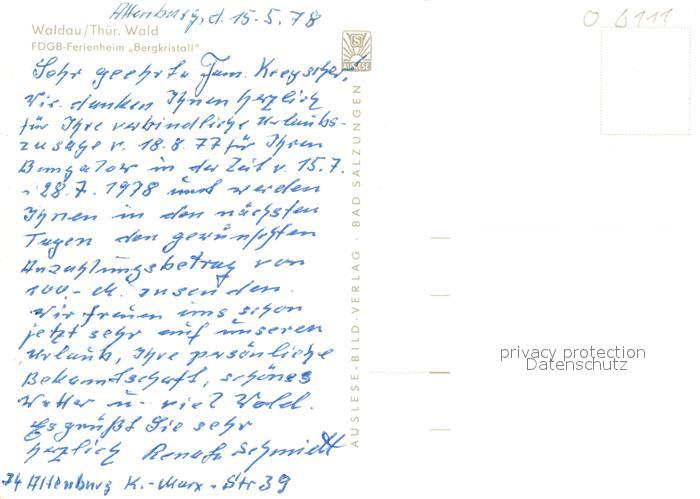 Altenburg, d. 15.5.78
O 6111
Waldau/Thür. Wald
FDGB-Ferienheim „Bergkristall"
AUSLESE
Sehr geehrte Fam. Kreyscher!
Wir danken Ihnen herzlich
für Ihre verbindliche Urlaubs-
zusage v. 18.8.77 für Ihren
Bungalow in der Zeit v. 15.7.
- 28.7.1978 und werden
Ihnen in den nächsten
Tagen den gewünschten
Anzahlungsbetrag von
100,- M. zusenden.
Wir freuen uns schon
jetzt sehr auf unseren
Urlaub, Ihre persönliche
Bekanntschaft, schönes
Wetter u. viel Wald.
Es grüßt Sie sehr
herzlich Renate Schmidt
74 Altenburg K.-Marx-Str 39
AUSLESE-BILD-VERLAG · BAD SALZUNGEN
privacy protection
Datenschutz